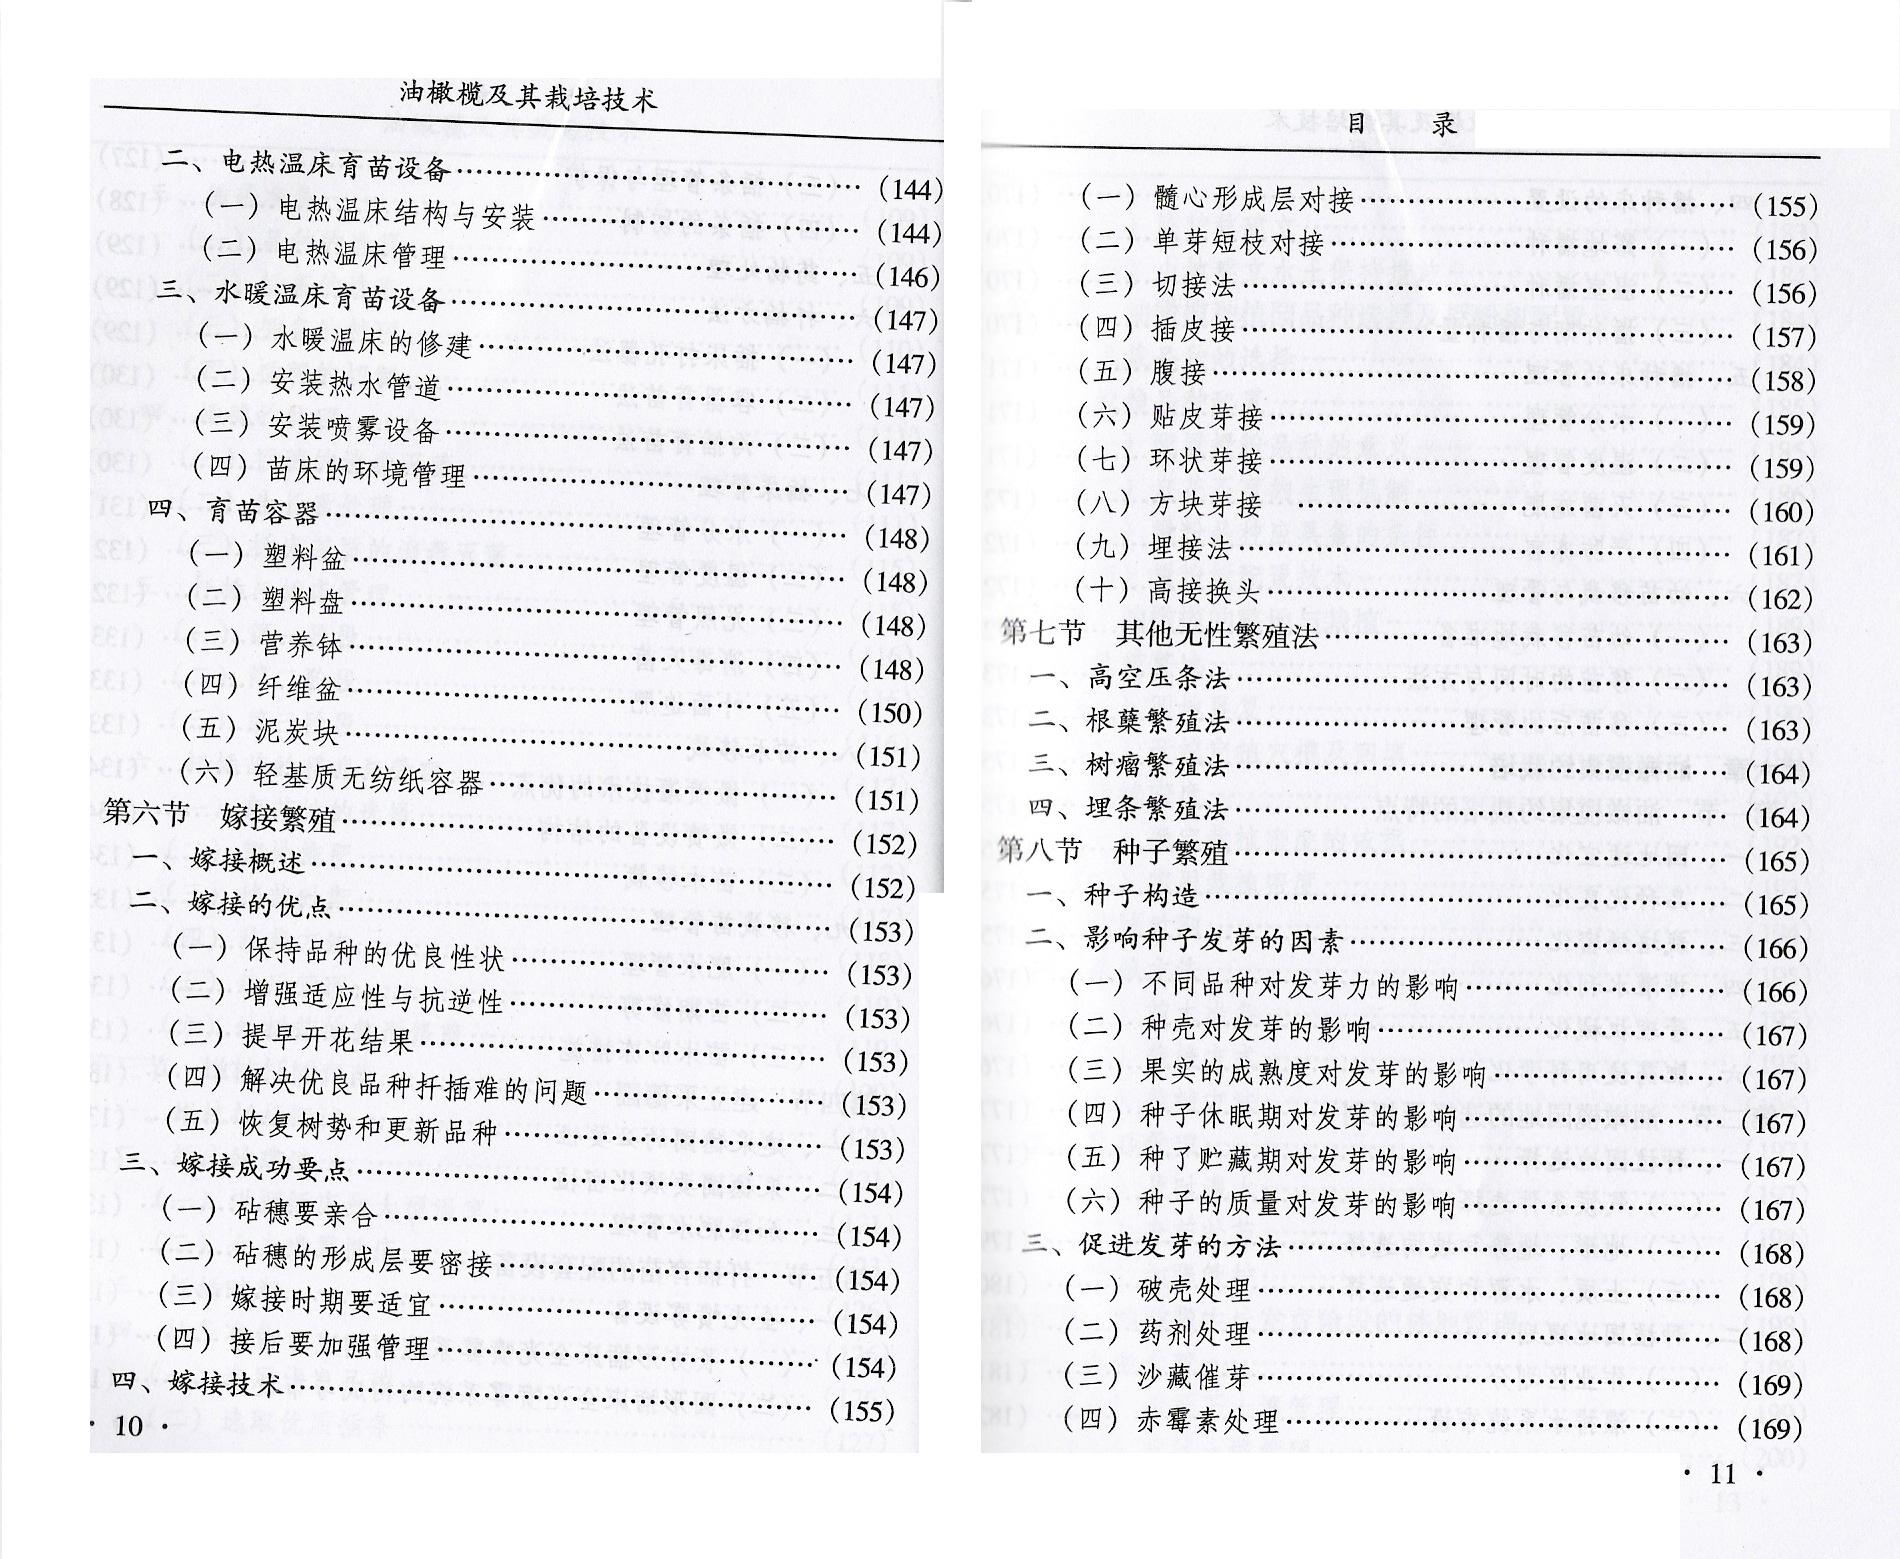 油橄榄及其栽培技术
二、电热温床育苗设备……(144)
(一)电热温床结构与安装……(144)
(二)电热温床管理……(146)
三、水暖温床育苗设备……(147)
(一)水暖温床的修建……(147)
(二)安装热水管道……(147)
(三)安装喷雾设备……(147)
(四)苗床的环境管理……(147)
四、育苗容器……(148)
(一)塑料盆……(148)
(二)塑料盘……(148)
(三)营养钵……(148)
(四)纤维盆……(150)
(五)泥炭块……(151)
(六)轻基质无纺纸容器……(151)
第六节 嫁接繁殖……(152)
一、嫁接概述……(152)
二、嫁接的优点……(153)
(一)保持品种的优良性状……(153)
(二)增强适应性与抗逆性……(153)
(三)提早开花结果……(153)
(四)解决优良品种扦插难的问题……(153)
(五)恢复树势和更新品种……(153)
三、嫁接成功要点……(154)
(一)砧穗要亲合……(154)
(二)砧穗的形成层要密接……(154)
(三)嫁接时期要适宜……(154)
(四)接后要加强管理……(154)
四、嫁接技术……(155)
· 10 ·
目 录
(一)髓心形成层对接……(155)
(二)单芽短枝对接……(156)
(三)切接法……(156)
(四)插皮接……(157)
(五)腹接……(158)
(六)贴皮芽接……(159)
(七)环状芽接……(159)
(八)方块芽接……(160)
(九)埋接法……(161)
(十)高接换头……(162)
第七节 其他无性繁殖法……(163)
一、高空压条法……(163)
二、根蘖繁殖法……(163)
三、树瘤繁殖法……(164)
四、埋条繁殖法……(164)
第八节 种子繁殖……(165)
一、种子构造……(165)
二、影响种子发芽的因素……(166)
(一)不同品种对发芽力的影响……(166)
(二)种壳对发芽的影响……(167)
(三)果实的成熟度对发芽的影响……(167)
(四)种子休眠期对发芽的影响……(167)
(五)种了贮藏期对发芽的影响……(167)
(六)种子的质量对发芽的影响……(167)
三、促进发芽的方法……(168)
(一)破壳处理……(168)
(二)药剂处理……(168)
(三)沙藏催芽……(169)
(四)赤霉素处理……(169)
· 11 ·